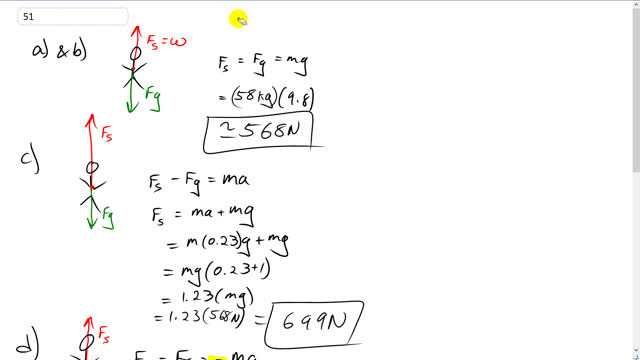 51
a) & b)
F_s = ω
F_g
F_s = F_g = mg
= (58kg)(9.8)
≃ 568N
c)
F_s
F_g
F_s - F_g = ma
F_s = ma + mg
= m(0.23)g + mg
= mg(0.23+1)
= 1.23(mg)
= 1.23(568N) = 699N
d)
F_s